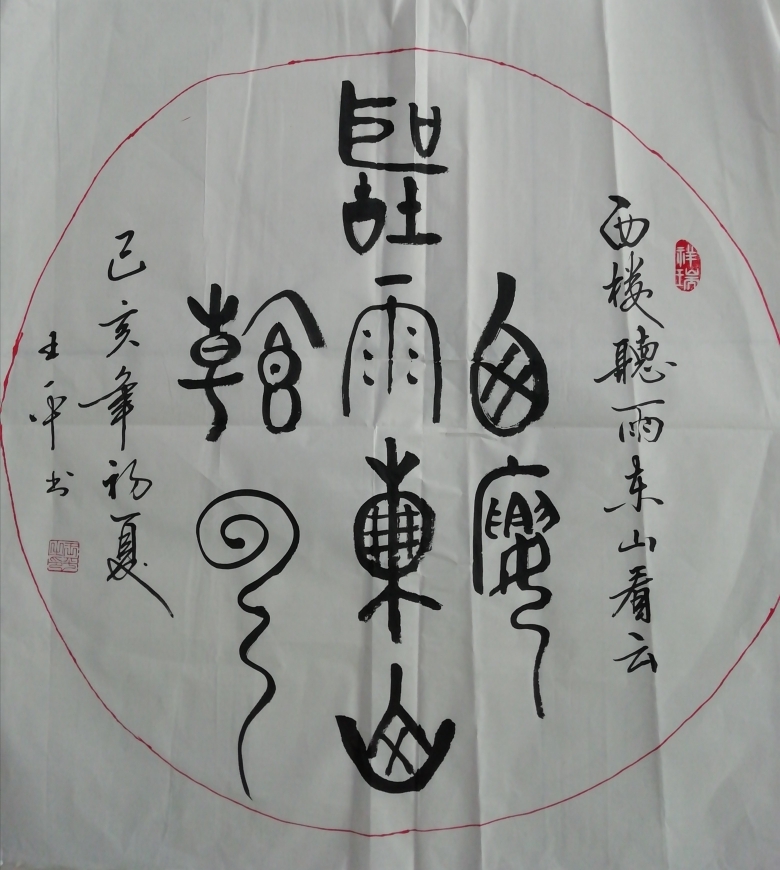 祥瑞
西楼聽雨东山看云
西樓
聽雨東山
看云
己亥年初夏
王平书